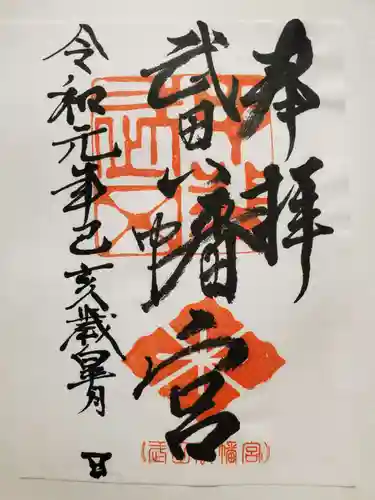 奉拝
武田八幡宮
令和元年己亥歳皐月
日
武田八幡宮